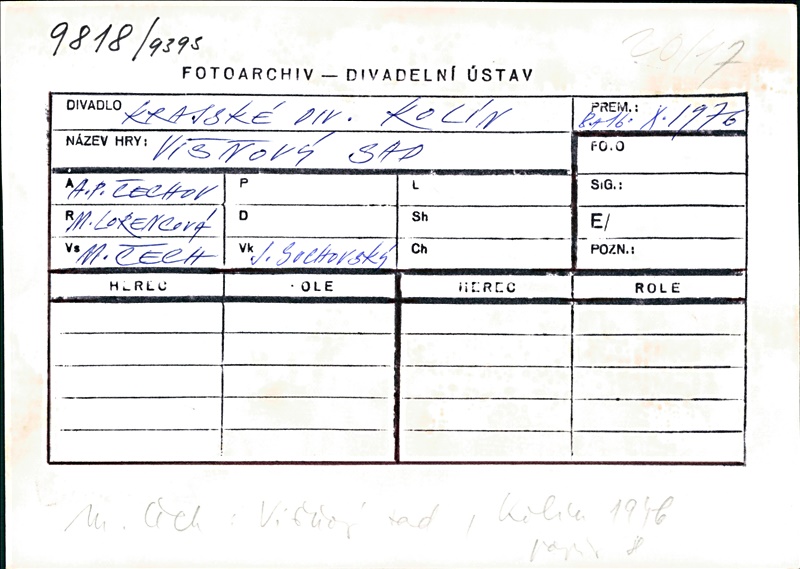 9818/9395
20/17
FOTOARCHIV — DIVADELNÍ ÚSTAV
DIVADLO KRAJSKÉ DIV. KOLÍN PREM.: 8.+16. X. 1976
NÁZEV HRY: VIŠŇOVÝ SAD FO.O
A A.P. ČECHOV P L SIG.:
R M. LORENCOVÁ D Sh E/
Vs M. ČECH Vk J. Suchovský Ch POZN.:
HEREC OLE HEREC ROLE
M. Čech: Višňový sad, Kolín 1976
8